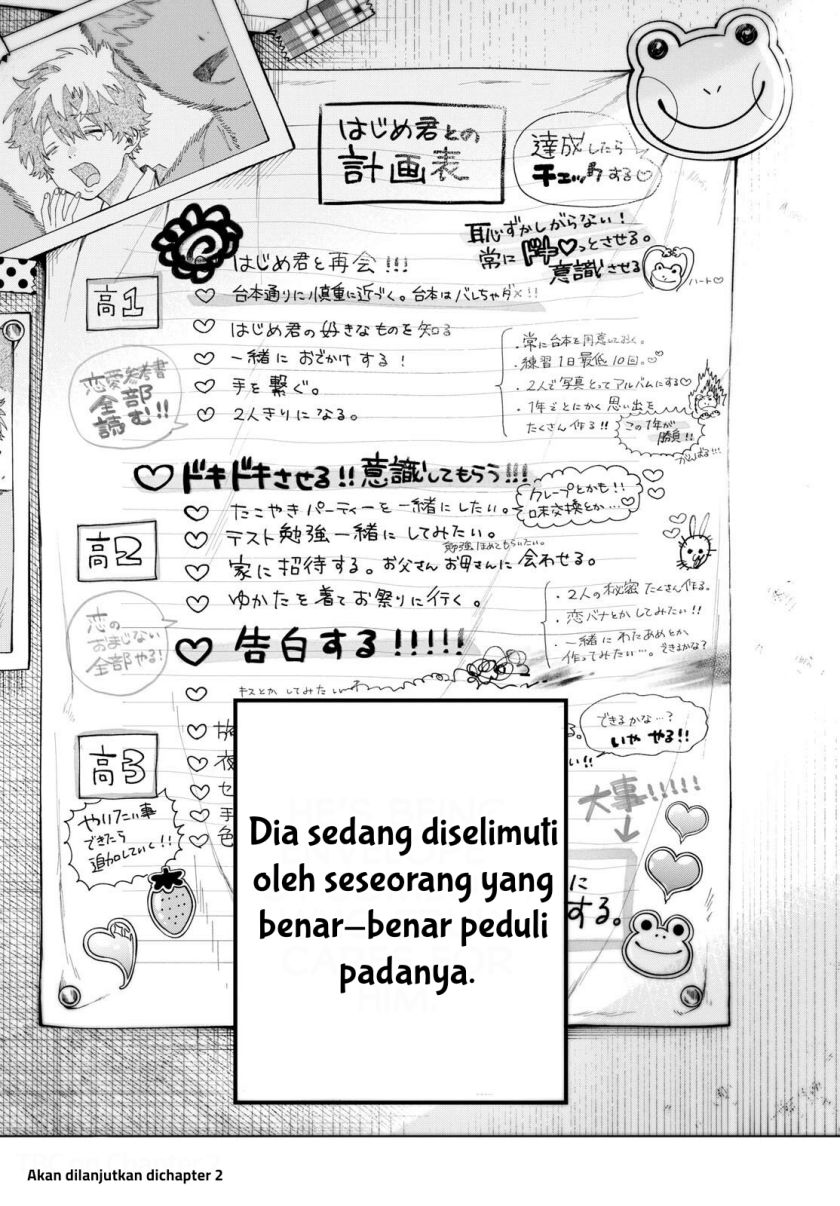 はじめ君との
計画表
達成したら
チェックする♡
恥ずかしがらない！
常にドキ♡っとさせる。
意識させる
ハート♡
はじめ君と再会!!!
高1
♡ 台本通りに慎重に近づく。台本はバレちゃダメ!!
♡ はじめ君の好きなものを知る
♡ 一緒におでかけする！
♡ 手を繋ぐ。
♡ 2人きりになる。
恋愛参考書
全部
読む!!
・常に台本を用意しておく。
・練習1日最低10回。
・2人で写真とってアルバムにする♡
・1年でとにかく思い出を
たくさん作る!!
この1年が
勝負!!
がんばる!!!
♡ドキドキさせる!!意識してもらう!!!
♡ たこやきパーティーを一緒にしたい。
クレープとかも!!
味交換とか…
高2
♡ テスト勉強一緒にしてみたい。
勉強ほめてもらいたい。
♡ 家に招待する。お父さんお母さんに会わせる。
♡ ゆかたを着てお祭りに行く。
♡ 告白する!!!!!
恋の
おまじない
全部やる!
・2人の秘密たくさん作る。
・恋バナとかしてみたい!!
・一緒にわたあめとか
作ってみたい…。できるかな?
♡ キスとかしてみたい
高3
できるかな…?
いややる!!
夜
セ
手
色
やりたい事
できたら
追加していく!!
大事!!!!!
に
する。
Dia sedang diselimuti
oleh seseorang yang
benar-benar peduli
padanya.
Akan dilanjutkan dichapter 2